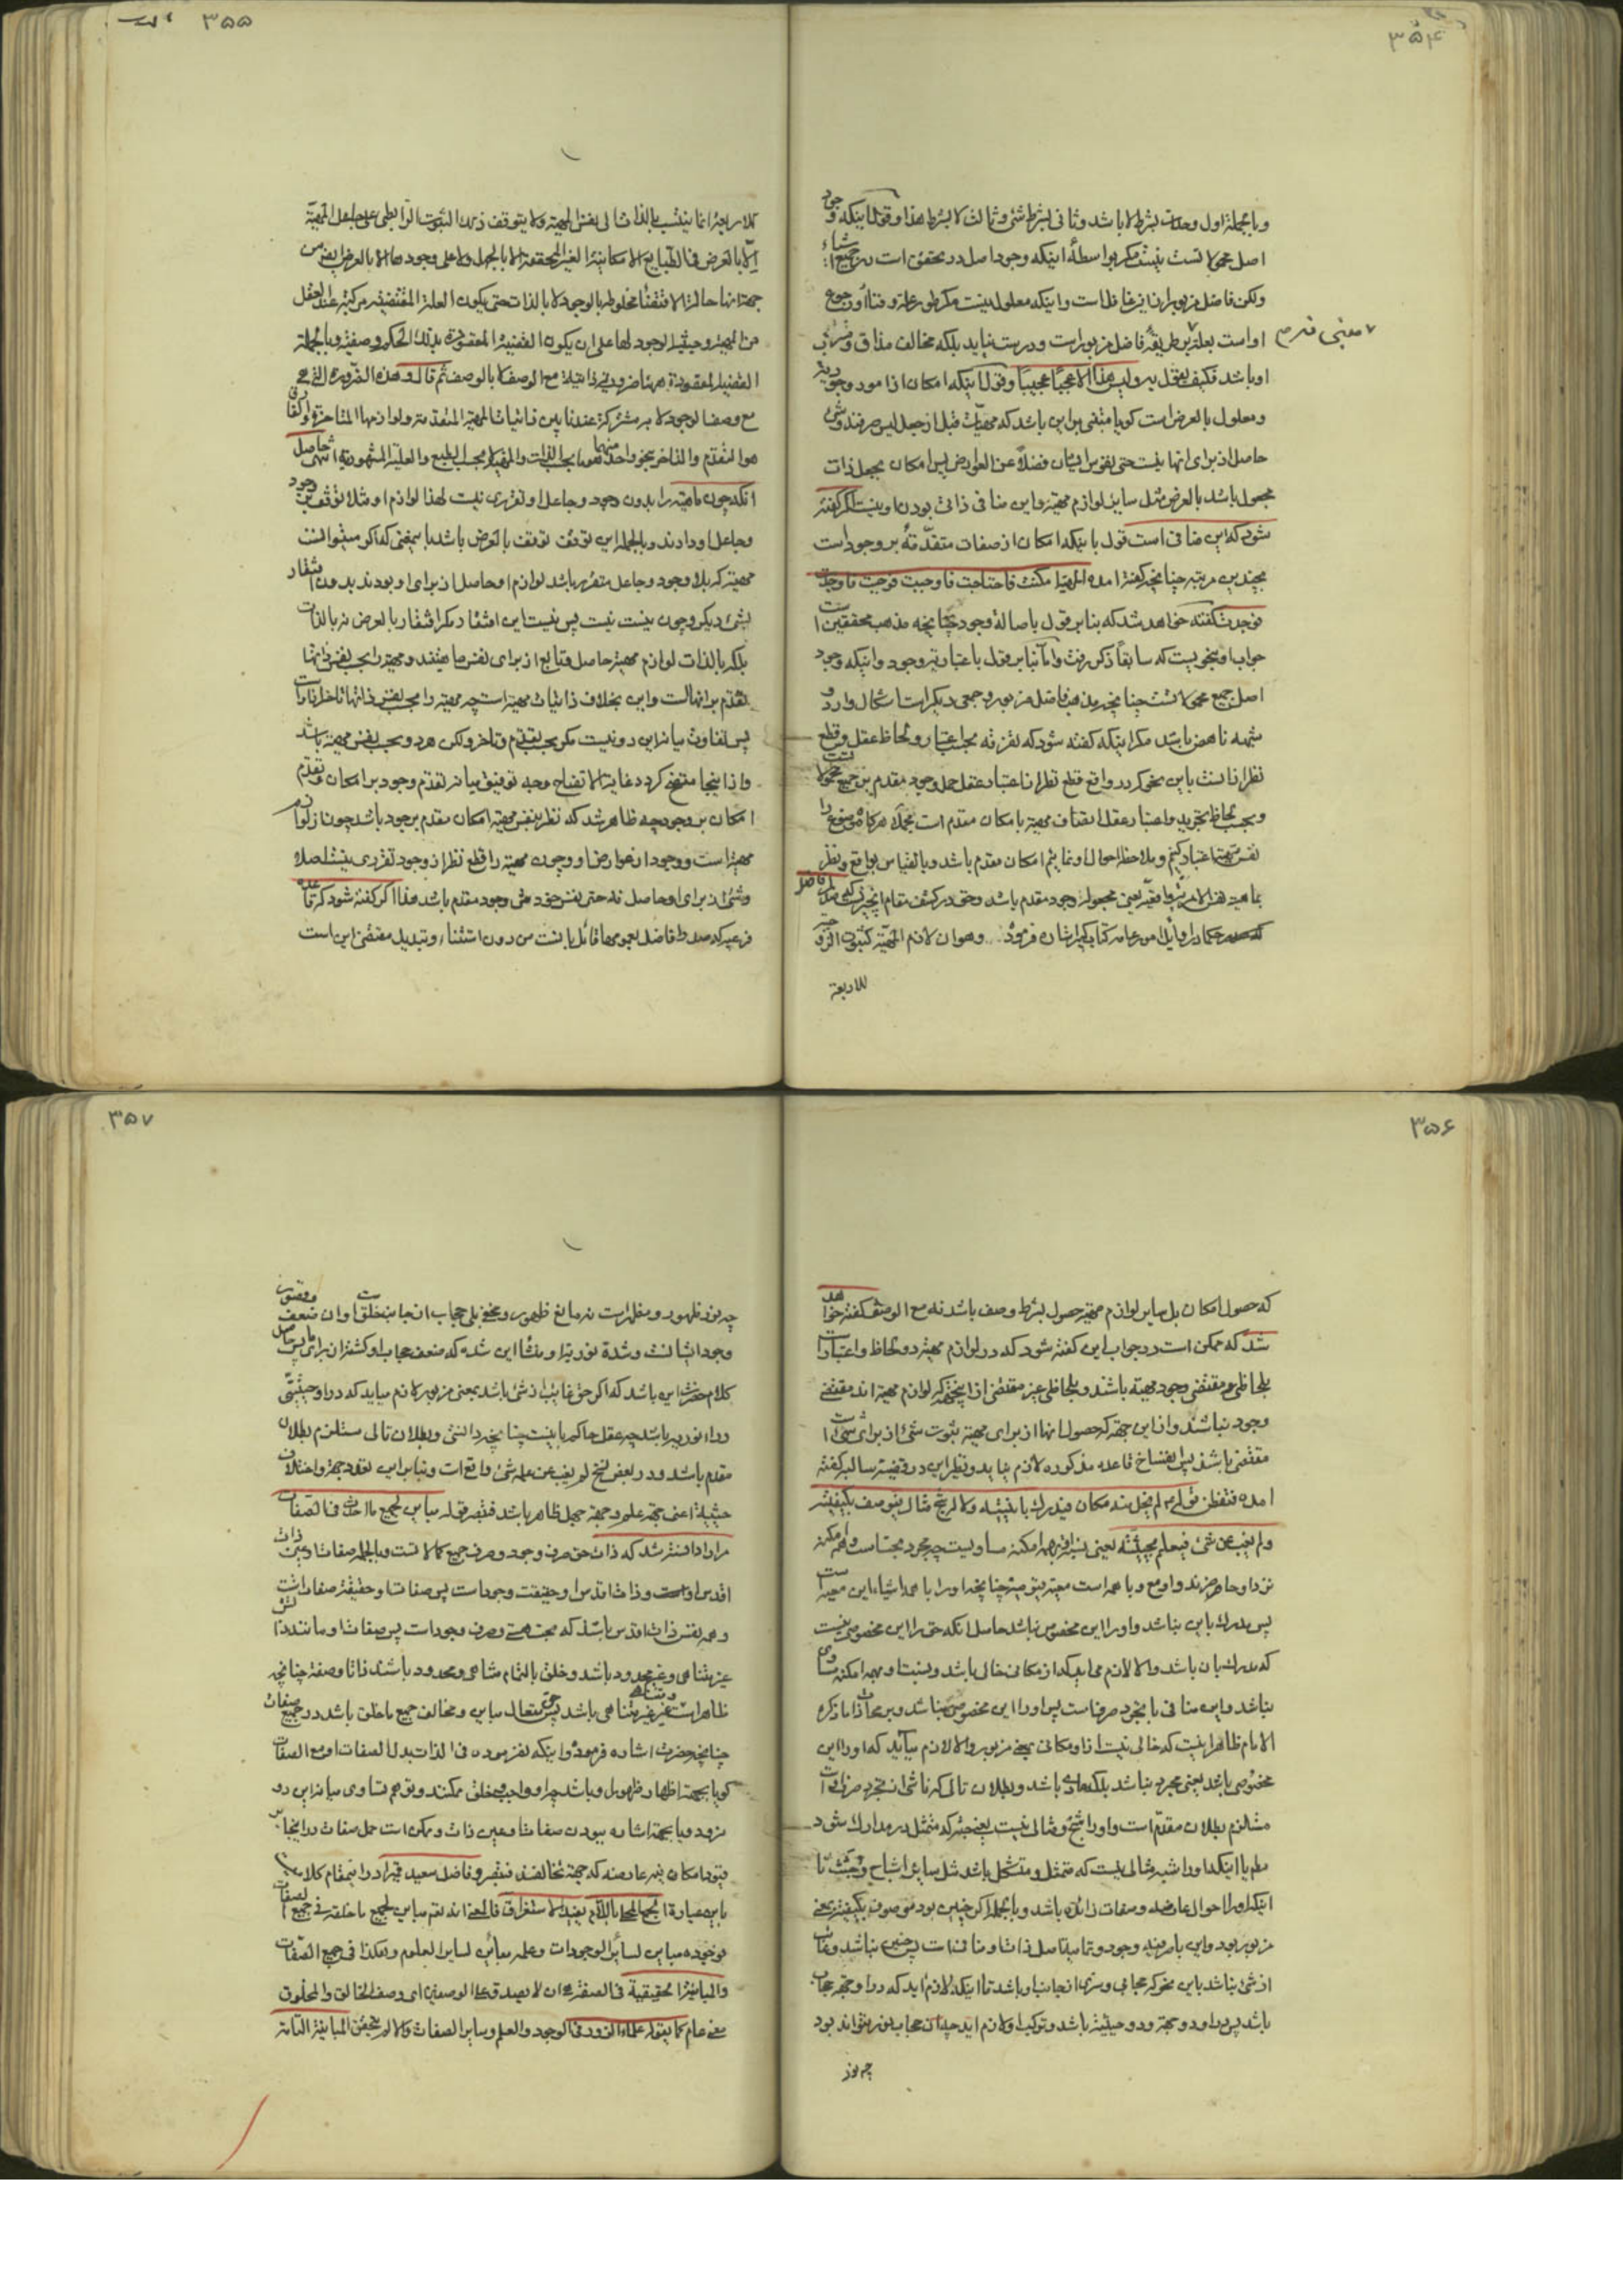 ۳۵۴
و بالجمله اول وحدت بشرط لا باشد و ثانی بشرط شئ و ثالث لا بشرط هذا و قول باینکه وجود
اصل مجعولاتست نیست مگر بواسطهٔ اینکه وجود اصل در تحقق است در جمیع اشیاء
ولکن فاضل مزبور از این غافل است و اینکه معلول نیست مگر طور علة و
او است بعلة بر طریقهٔ فاضل مزبور است و درست نیاید بلکه مخالف مذاق و مشرب
معنی قدیم
او باشد فکیف یعقل به و لیس هذا الا عجبا عجیبا و قول باینکه امکان از امور وجودیة
و معلول بالعرض است گویا مبتنی بر این باشد که مهیّات قبل از جعل لیس صرفند و شئ
حاصل از برای انها نیست حتی نفس ایشان فضلاً عن العوارض پس امکان بجعل ذات
مجعول باشد بالعرض مثل سایر لوازم مهیّة و این منافی ذاتی بودن او نیست اگر گفته
شود که این منافی است قول باینکه امکان از صفات متقدّمهٔ بر وجود است
بچندین مرتبه چنانچه گفته امده المهیة امکنت فاحتاجت فاوجبت فوجبت فاوجدت
فوجدت گفته خواهد شد که بنابر قول باصالة وجود چنانچه مذهب محققین است
جواب او بنحویست که سابقاً ذکر رفت و اما بنابر قول باعتباریة وجود و اینکه وجود
اصل جمیع مجعولاتست چنانچه مذهب فاضل مزبور و جمعی دیگر است اشکال وارد و
شبهه ناهض باشد مگر اینکه گفته شود که تفرقه بحسب اعتبار و لحاظ عقل و قطع
نظر از انست باین نحو که در واقع قطع نظر از اعتبار عقل جعل وجود مقدم بر جمیع مجعولاتست
و بحسب لحاظ تجرید و اعتبار عقل اتصاف مهیة بامکان مقدم است بجمله هرگاه موضوع را
نفس مهیة اعتبار کنیم و ملاحظه احوال او نمائیم امکان مقدم باشد و بالقیاس بواقع و نظر
بماهیة نفس الامریة واقعیّه یعنی مجعوله وجود مقدم باشد و حق در کشف مقام انچیزیست که
حکما در اوایل امور عامه کتاب کبیرشان فرموده و هو ان لازم المهیّة کثبوت الزوجیّة
للاربعة
۳۵۵
للاربعة انما ینتسب بالذات الی نفس المهیة و لا یتوقف ذلک الثبوت الرابطی علی جاعل المهیّة
الّا بالعرض فی الطبایع الامکانیة الغیر المتحققة الا بالجعل و لا علی وجودها الا بالعرض ایضا من
جهة انها حالة الاقتضاء مخلوطه بالوجود لا بالذات حتی یکون العلة المقتضیه مرکبة عند العقل
من المهیة و حیثیة الوجود لها علی ان یکون القضیة المعقودة بذلک الحکم وصفیة و بالجملة
القضیة المعقودة هیهنا ضروریة ذاتیة مع الوصف لا بالوصف ثم قال و هذه الضرورة التی هی
مع وصف الوجود لا به مشترکة عندنا بین ذاتیات المهیة المتقدمة و لوازمها المتاخرة و الفارق
هو التقدم و التاخر بنحو واحد منهما بحسب الذات و المهیة لا بحسب الطبع و العلیة المشهوریة انتهی حاصل
انکه چون مهیّة را بدون وجود و جاعل او تقرری نیست لهذا لوازم او مثلا توقف بر وجود
و جاعل او دارند و بالجمله این توقف توقف بالعرض باشد باینمعنی که اگر میتوانست
مهیة که بلا وجود و جاعل متقرر باشد لوازم او حاصل از برای او بودند بدون افتقار
بشئ دیگر و چون نیست نیست پس نیست این افتقار مگر افتقار بالعرض نه بالذات
بلکه بالذات لوازم مهیة حاصل و تابع از برای نفس ماهیتند و مهیة را بحسب نفس ذاتها
تقدم بر انهاست و این بخلاف ذاتیات مهیة است چه مهیة را بحسب نفس ذاتها تاخر از انها است
پس تفاوت میانه این دو نیست مگر بحسب تقدم و تاخر ولکن هر دو بحسب نفس مهیة باشد
و از اینجا متضح گردد غایة الاتضاح وجه توفیق میانه تقدم وجود بر امکان و تقدم
امکان بر وجود چه ظاهر شد که نظر بنفس مهیة امکان مقدم بر وجود باشد چون از لوازم
مهیة است و وجود از عوارض او چون مهیة را قطع نظر از وجود تقرری نیست اصلا
و شئ از برای او حاصل نه حتی نفس خودش وجود مقدم باشد هذا اگر گفته شود که قاعده
فرعیه که صدرا فاضل بعمومها قائل بانست من دون استثناء و تبدیل مقتضی این است
۳۵۶
که حصول امکان بل سایر لوازم مهیة حصول بشرط وصف باشد نه مع الوصف گفته خواهد
شد که ممکن است در جواب این گفته شود که در لوازم مهیة دو لحاظ و اعتبار است
بلحاظی مقتضی وجود مهیة باشند و بلحاظی غیر مقتضی از اینجهة که لوازم مهیة اند مقتضی
وجود نباشند و از این جهة که حصول انها از برای مهیة ثبوت شئ از برای شئ است
مقتضی باشند پس انفساخ قاعده مذکوره لازم نیاید و نظیر این در وقیتة سالبه گفته
امده فتفطن قوله ع لم یخل منه مکان فیدرک باینیته و لا له شبح مثال فیوصف بکیفیته
و لم یغب عن شئ فیعلم بحیثیته یعنی نسبت او بهمه امکنه مساویست چه مجرد بحت است و همه امکنه
نزد او حاضرند و او مع و با همه است معیة قیومیة چنانچه او را با همه اشیاء این معیة است
پس مدرک باین نباشد و او را این مخصوص نباشد حاصل انکه حق را این مخصوصی نیست
که مدرک بان باشد و الا لازم می اید که از مکانی خالی باشد و نسبت او بهمه امکنه مساوی
نباشد و این منافی با تجرد صرف است پس او را این مخصوص نباشد و بر محاذات ما ذکره
الامام ظاهر اینست که خالی نیست از او مکانی بمعنی مزبور و الا لازم میآید که او را این
مخصوصی باشد یعنی مجرد نباشد بلکه مادی باشد و بطلان تالی که ناشی از تجرد صرف او است
مستلزم بطلان مقدم است و او را شبح و مثالی نیست یعنی چنین نیست که متمثل در مدارک شود
ام یا اینکه او را شبه مثالی نیست که متمثل و متشکل باشد مثل سایر اشباح و جثث تا
اینکه او را احوال عارضه و صفات زائده باشد و بالجمله اگر چنین بود موصوف بکیفیته بمعنی
مزبور بود و این با صرفیت وجود و تمامیة اصل ذات او منافی است پس چنین نباشد و غائب
از شئ نباشد باین نحو که حجابی و ستری از جانب او باشد تا اینکه لازم اید که در او جهة حجاب
باشد پس در او دو جهة و دو حیثیت باشد و ترکب او لازم اید چه از ان حجاب نور نتواند بود
چه نور
۳۵۷
چه نور ظهور و مظهر است نه مانع ظهور و مخفی بلی حجاب از جانب خلق است و ان ضعف و قصور
وجود ایشانست و شدة نوریة او منشا این شده که ضعف حجاب او گشته از برای ما پس حاصل
کلام حضرت این باشد که اگر حق غایب از شئ باشد بمعنی مزبور لازم میاید که در او حیثیتی
وراء نوریه باشد چه عقل حاکم باینست چنانچه دانستی و بطلان تالی مستلزم بطلان
مقدم باشد و در بعض نسخ لم یغب عن علمه شئ واقع است و بنابر این تعدد جهة و اختلاف
حیثیة اعنی جهة علم و جهة جهل ظاهر باشد فتبصر قوله مباین لجمیع ما احدث فی الصفات
مراد دانسته شد که ذات حق صرف وجود و صرف جمیع کمالاتست و بالجمله صفات او عین ذات
اقدس اوست و ذات اقدس او حقیقت وجود است پس صفات او حقیقة صفات است
و همه نفس ذات اقدس باشد که بحت هستی و صرف وجود است پس صفات او مانند ذاتش
غیر متناهی و غیر محدود باشد و خلق بالتمام متناهی و محدود باشند ذاتا و صفة چنانچه
ظاهر است غیر متناهی باشد پس حق متعال مباین و مخالف جمیع ما خلق باشد در جمیع صفات
چنانچه حضرت اشاره فرموده و اینکه نفرموده فی الذات بدل الصفات او مع الصفات
گویا بجهة اظهار ظهور او باشد چه او واجب و خلق ممکنند و توهم تساوی میانه این دو
نرود و یا بجهة اشاره ببودن صفات او عین ذات و ممکن است حمل صفات در اینجا بر
وجوب و امکان نیز عامه که جهة تخالفند فتبصر و فاضل سعید قمی را در اینمقام کلامیست
باین عبارة الجمع المحلی باللام یفید الاستغراق فالمعنی انه تعالی مباین لجمیع ما خلقه فی جمیع الصفات
فوجوده مباین لسائر الوجودات و علمه مباین لسایر العلوم و هکذا فی جمیع الصّفات
والمباینة الحقیقیة فی الصفة هی ان لا یصدق علی الوصفین ای وصف الخالق و المخلوق
معنی عام کما یقوله علماء الزور فی الوجود و العلم و سایر الصفات و الا لم یتحقق المباینة التامة